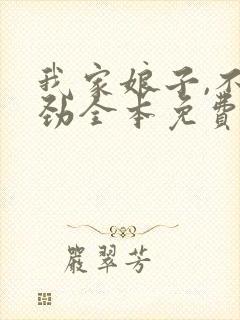 我家娘子,不
劲全本免费
嚴翠芳